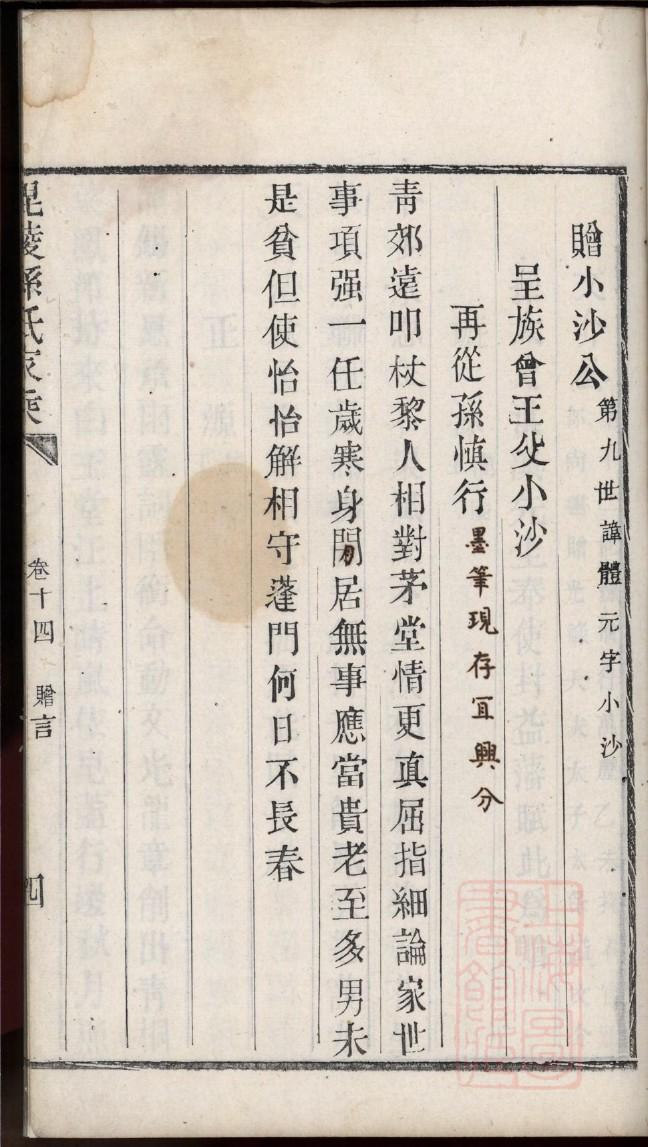 贈小沙公第九世諱體元字小沙
呈族曾王父小沙
再從孫慎行墨筆現存宜興分
青郊遠叩杖黎人相對茅堂情更真屈指細論家世
事項强一任歲寒身閒居無事應當貴老至多男未
是貧但使怡怡解相守蓬門何日不長春
毘陵孫氏家乘
卷十四 贈言
四